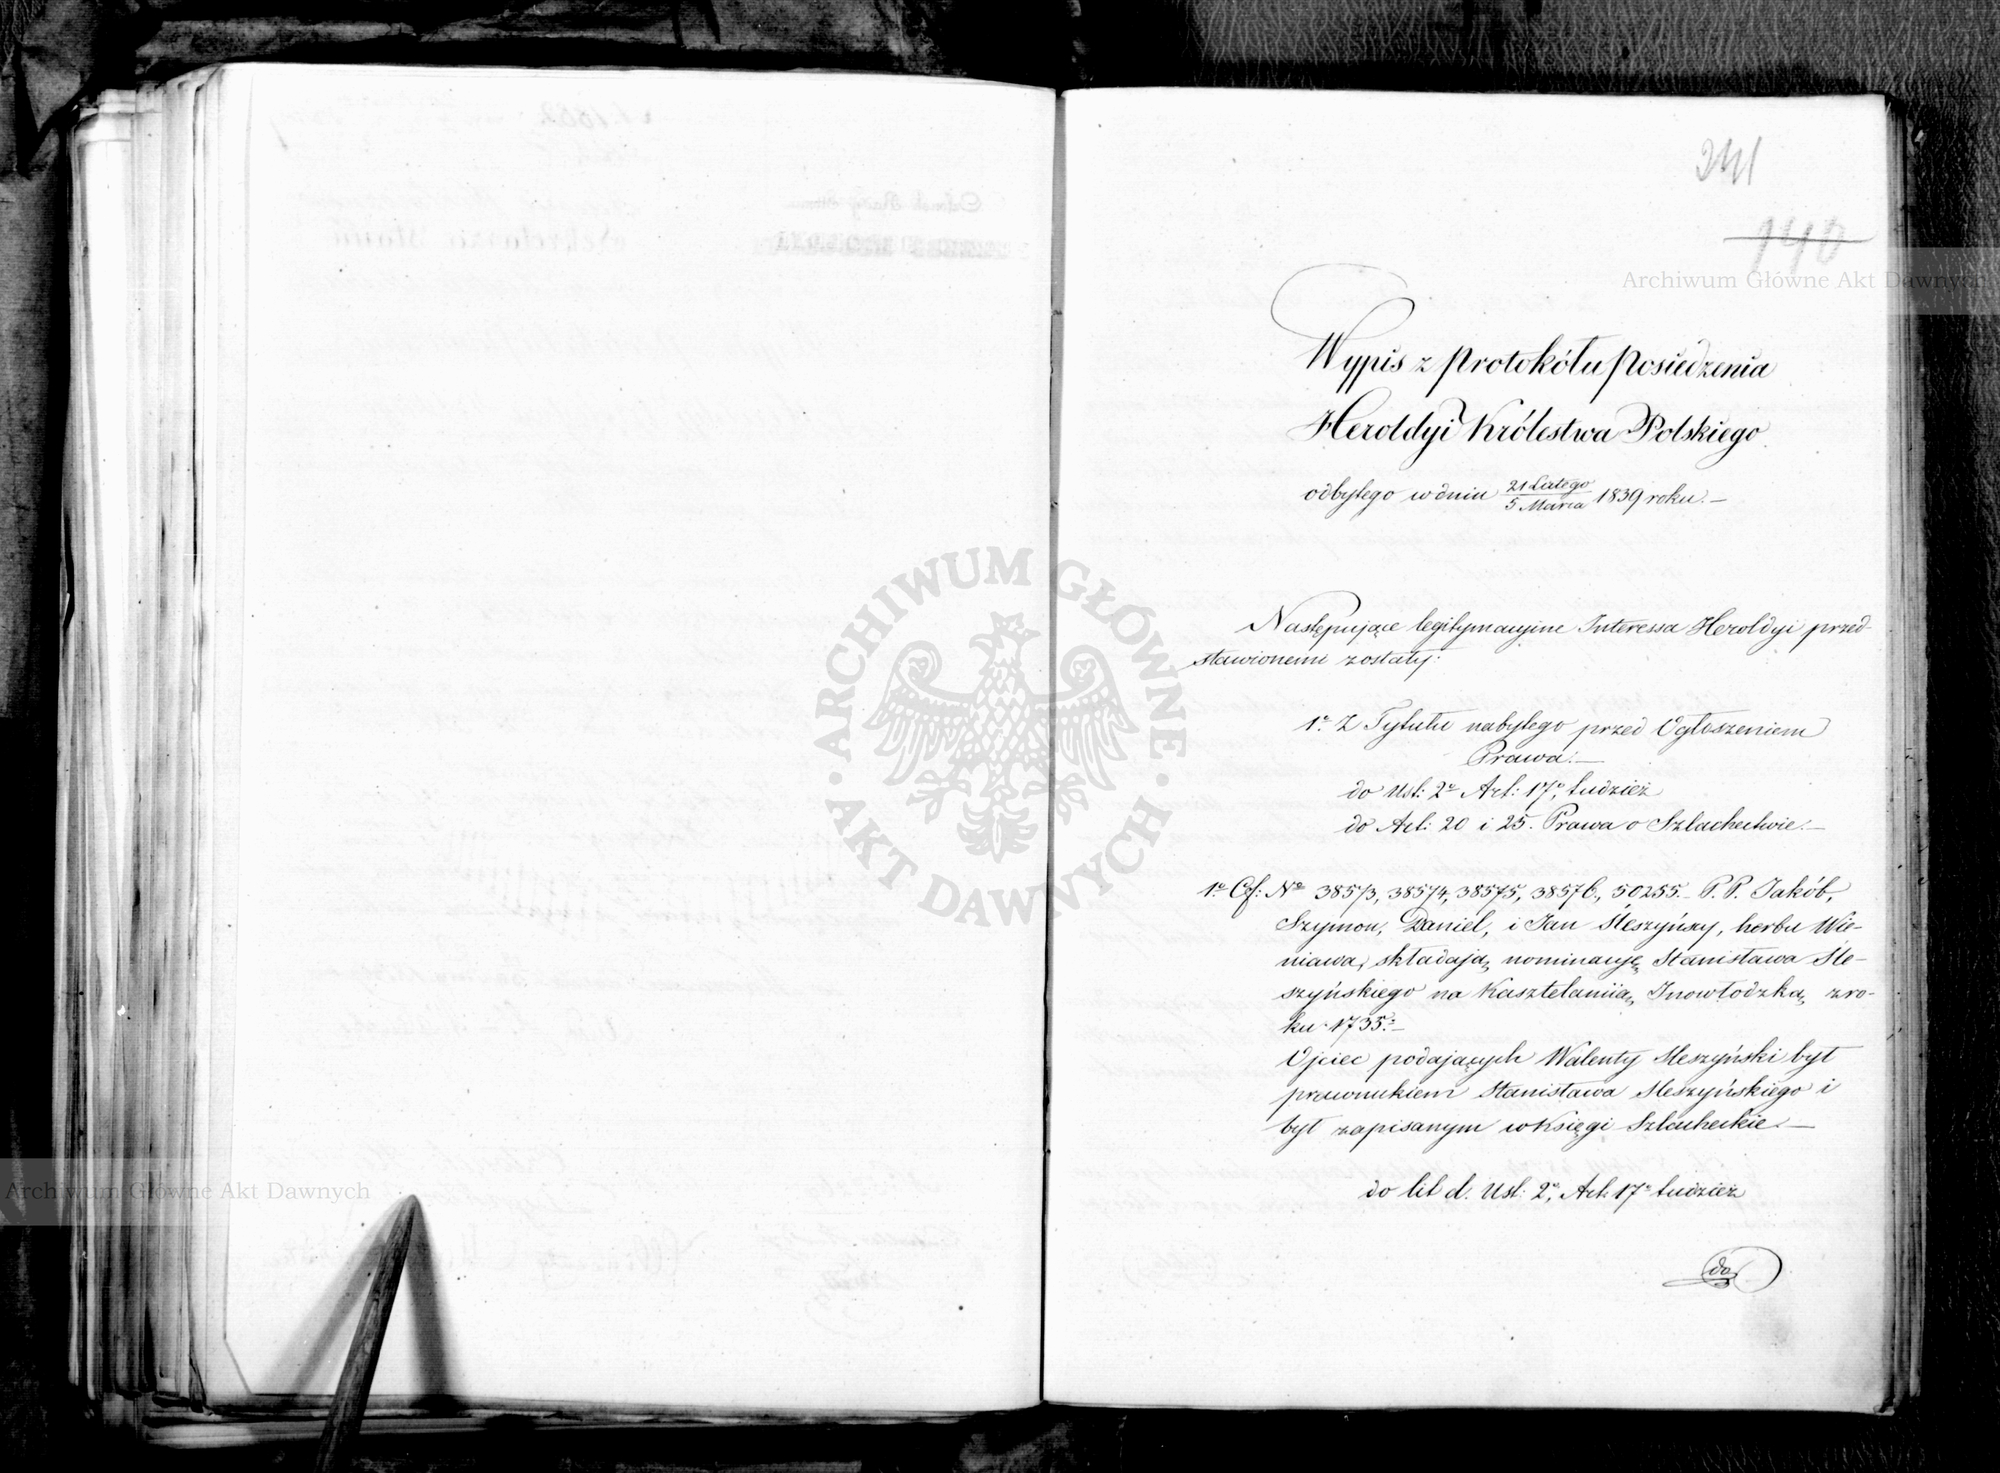 241
140
Archiwum Główne Akt Dawnych
Wypis z protokółu posiedzenia
Heroldyi Królestwa Polskiego
odbytego w dniu 21 Lutego / 5 Marca 1839 roku.—
ARCHIWUM GŁÓWNE · AKT DAWNYCH ·
Następujące legitymacyjne Interessa Heroldyi przed-
stawionemi zostały:
1º Z Tytułu nabytego przed Ogłoszeniem
Prawa.—
do Ust: 2º Art: 17º, tudzież
do Art: 20 i 25. Prawa o Szlachectwie.—
1º Cf: Nº 38573, 38574, 38575, 38576, 50255.- P.P. Jakób,
Szymon, Daniel, i Jan Śleszyńscy, herbu Wie-
niawa, składają nominacyę Stanisława Śle-
szyńskiego na Kasztelaniią Inowłodzką z ro-
ku 1735.—
Ojciec podających Walenty Sleszyński był
prawnukiem Stanisława Sleszyńskiego i
był zapisanym w Księgi Szlacheckie.—
Archiwum Główne Akt Dawnych
do lit d. Ust: 2º, Art. 17º tudzież
do